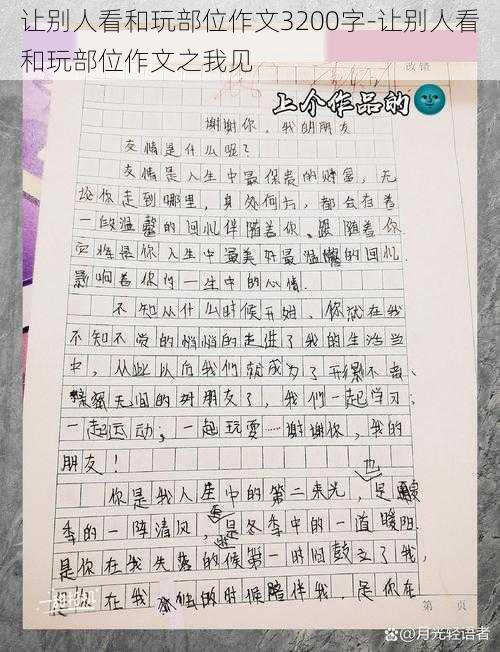 让别人看和玩部位作文3200字-让别人看
和玩部位作文之我见
改错
上个作品的
谢谢你，我的朋友
友情是什么呢？
友情是人生中最保贵的财富，无
论你走到哪里，身处何方，都会在着
一段温馨的回忆伴随着你、跟随着你
它将是你人生中最美好最温馨的回忆
影响着你的一生中的心情.
不知从什么时候开始，你就在我
不知不觉的悄悄的走进了我的生活当
中，从此以向我们就成为了形影不离、
亲密无间的好朋友了，我们一起学习；
一起运动；一起玩耍……谢谢你，我的
朋友！
也
你是我人生中的第二束光，是夏
季的一阵清风，是冬季中的一道暖阳.
是你在我失落的候第一时间鼓立了我,
是你在我孤独的时候陪伴我，是你在
第 页
小红书
@月光轻语者